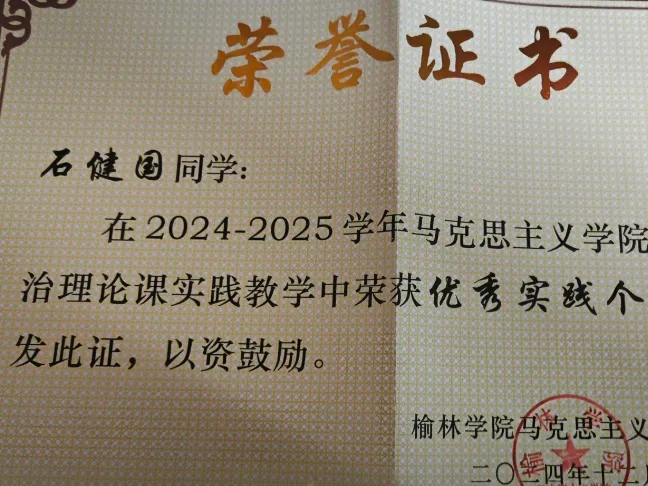 荣誉证书
石健国同学：
在2024-2025学年马克思主义学院
治理论课实践教学中荣获优秀实践个
发此证，以资鼓励。
榆林学院马克思主义
二〇二四年十二月
榆林学院